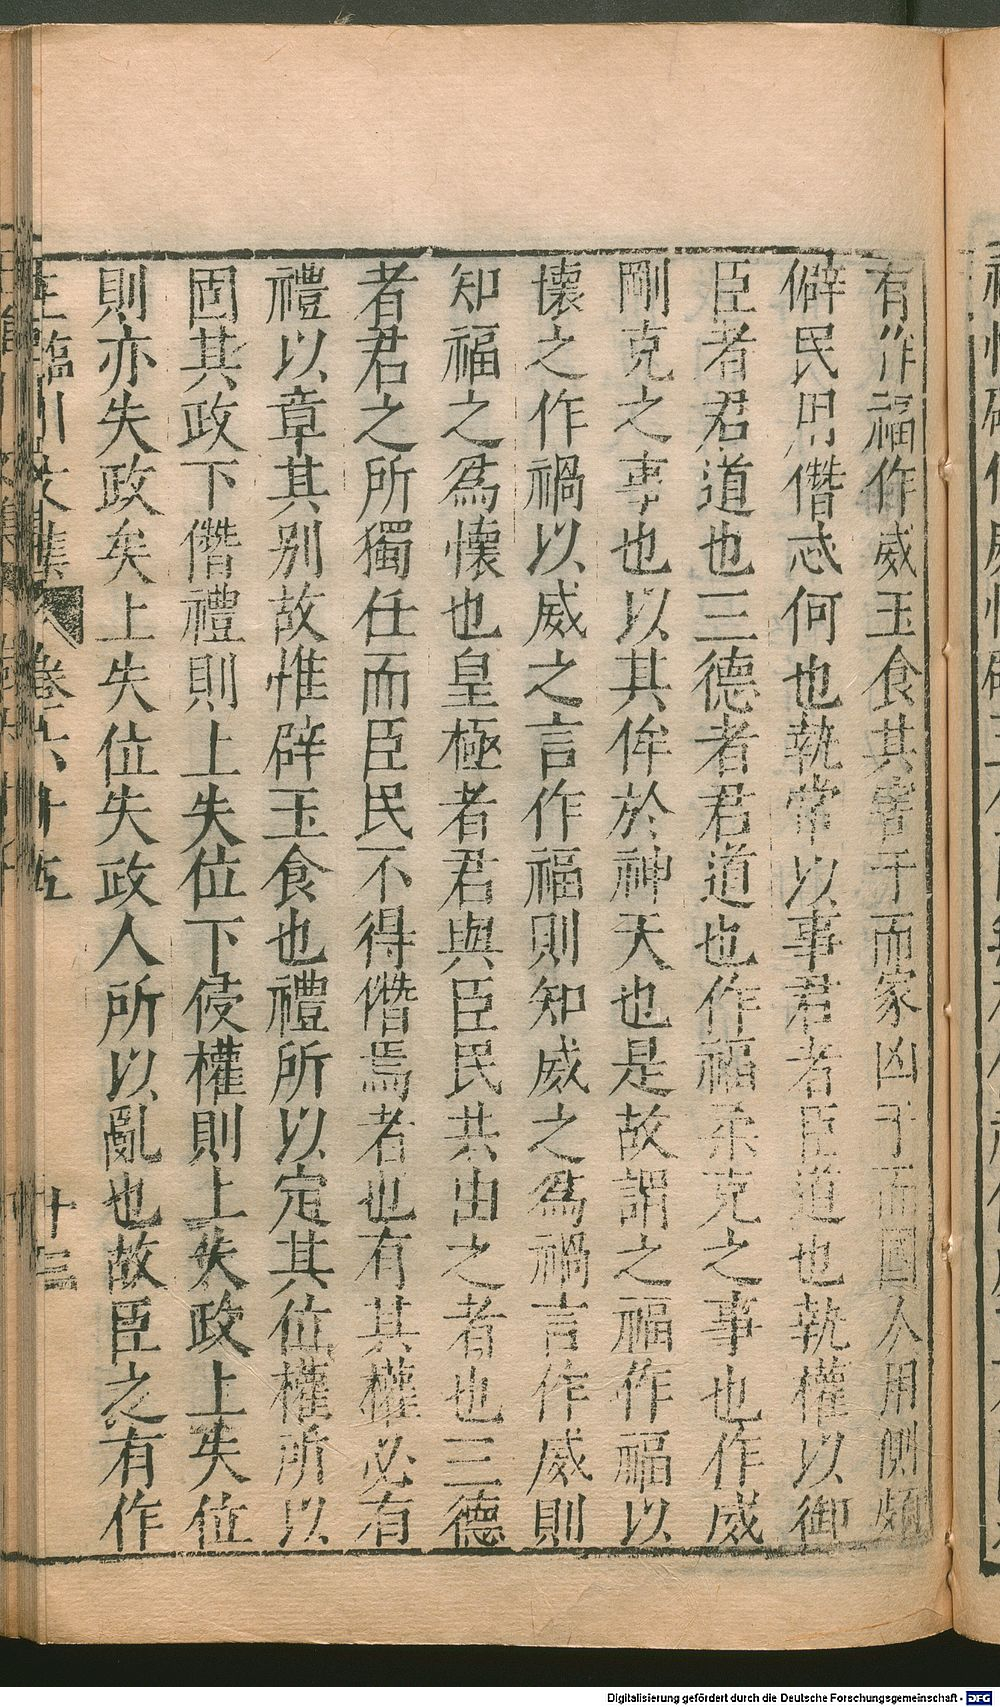 有作福作威玉食其害于而家凶于而國人用側頗
僻民用僭忒何也執常以事君者臣道也執權以御
臣者君道也三德者君道也作福柔克之事也作威
剛克之事也以其侔於神天也是故謂之福作福以
懷之作禍以威之言作福則知威之爲禍言作威則
知福之爲懷也皇極者君與臣民共由之者也三德
者君之所獨任而臣民不得僭焉者也有其權必有
禮以章其别故惟辟玉食也禮所以定其位權所以
固其政下僭禮則上失位下侵權則上失政上失位
則亦失政矣上失位失政人所以亂也故臣之有作
王臨川文集 卷六十五 十三
Digitalisierung gefördert durch die Deutsche Forschungsgemeinschaft - DFG